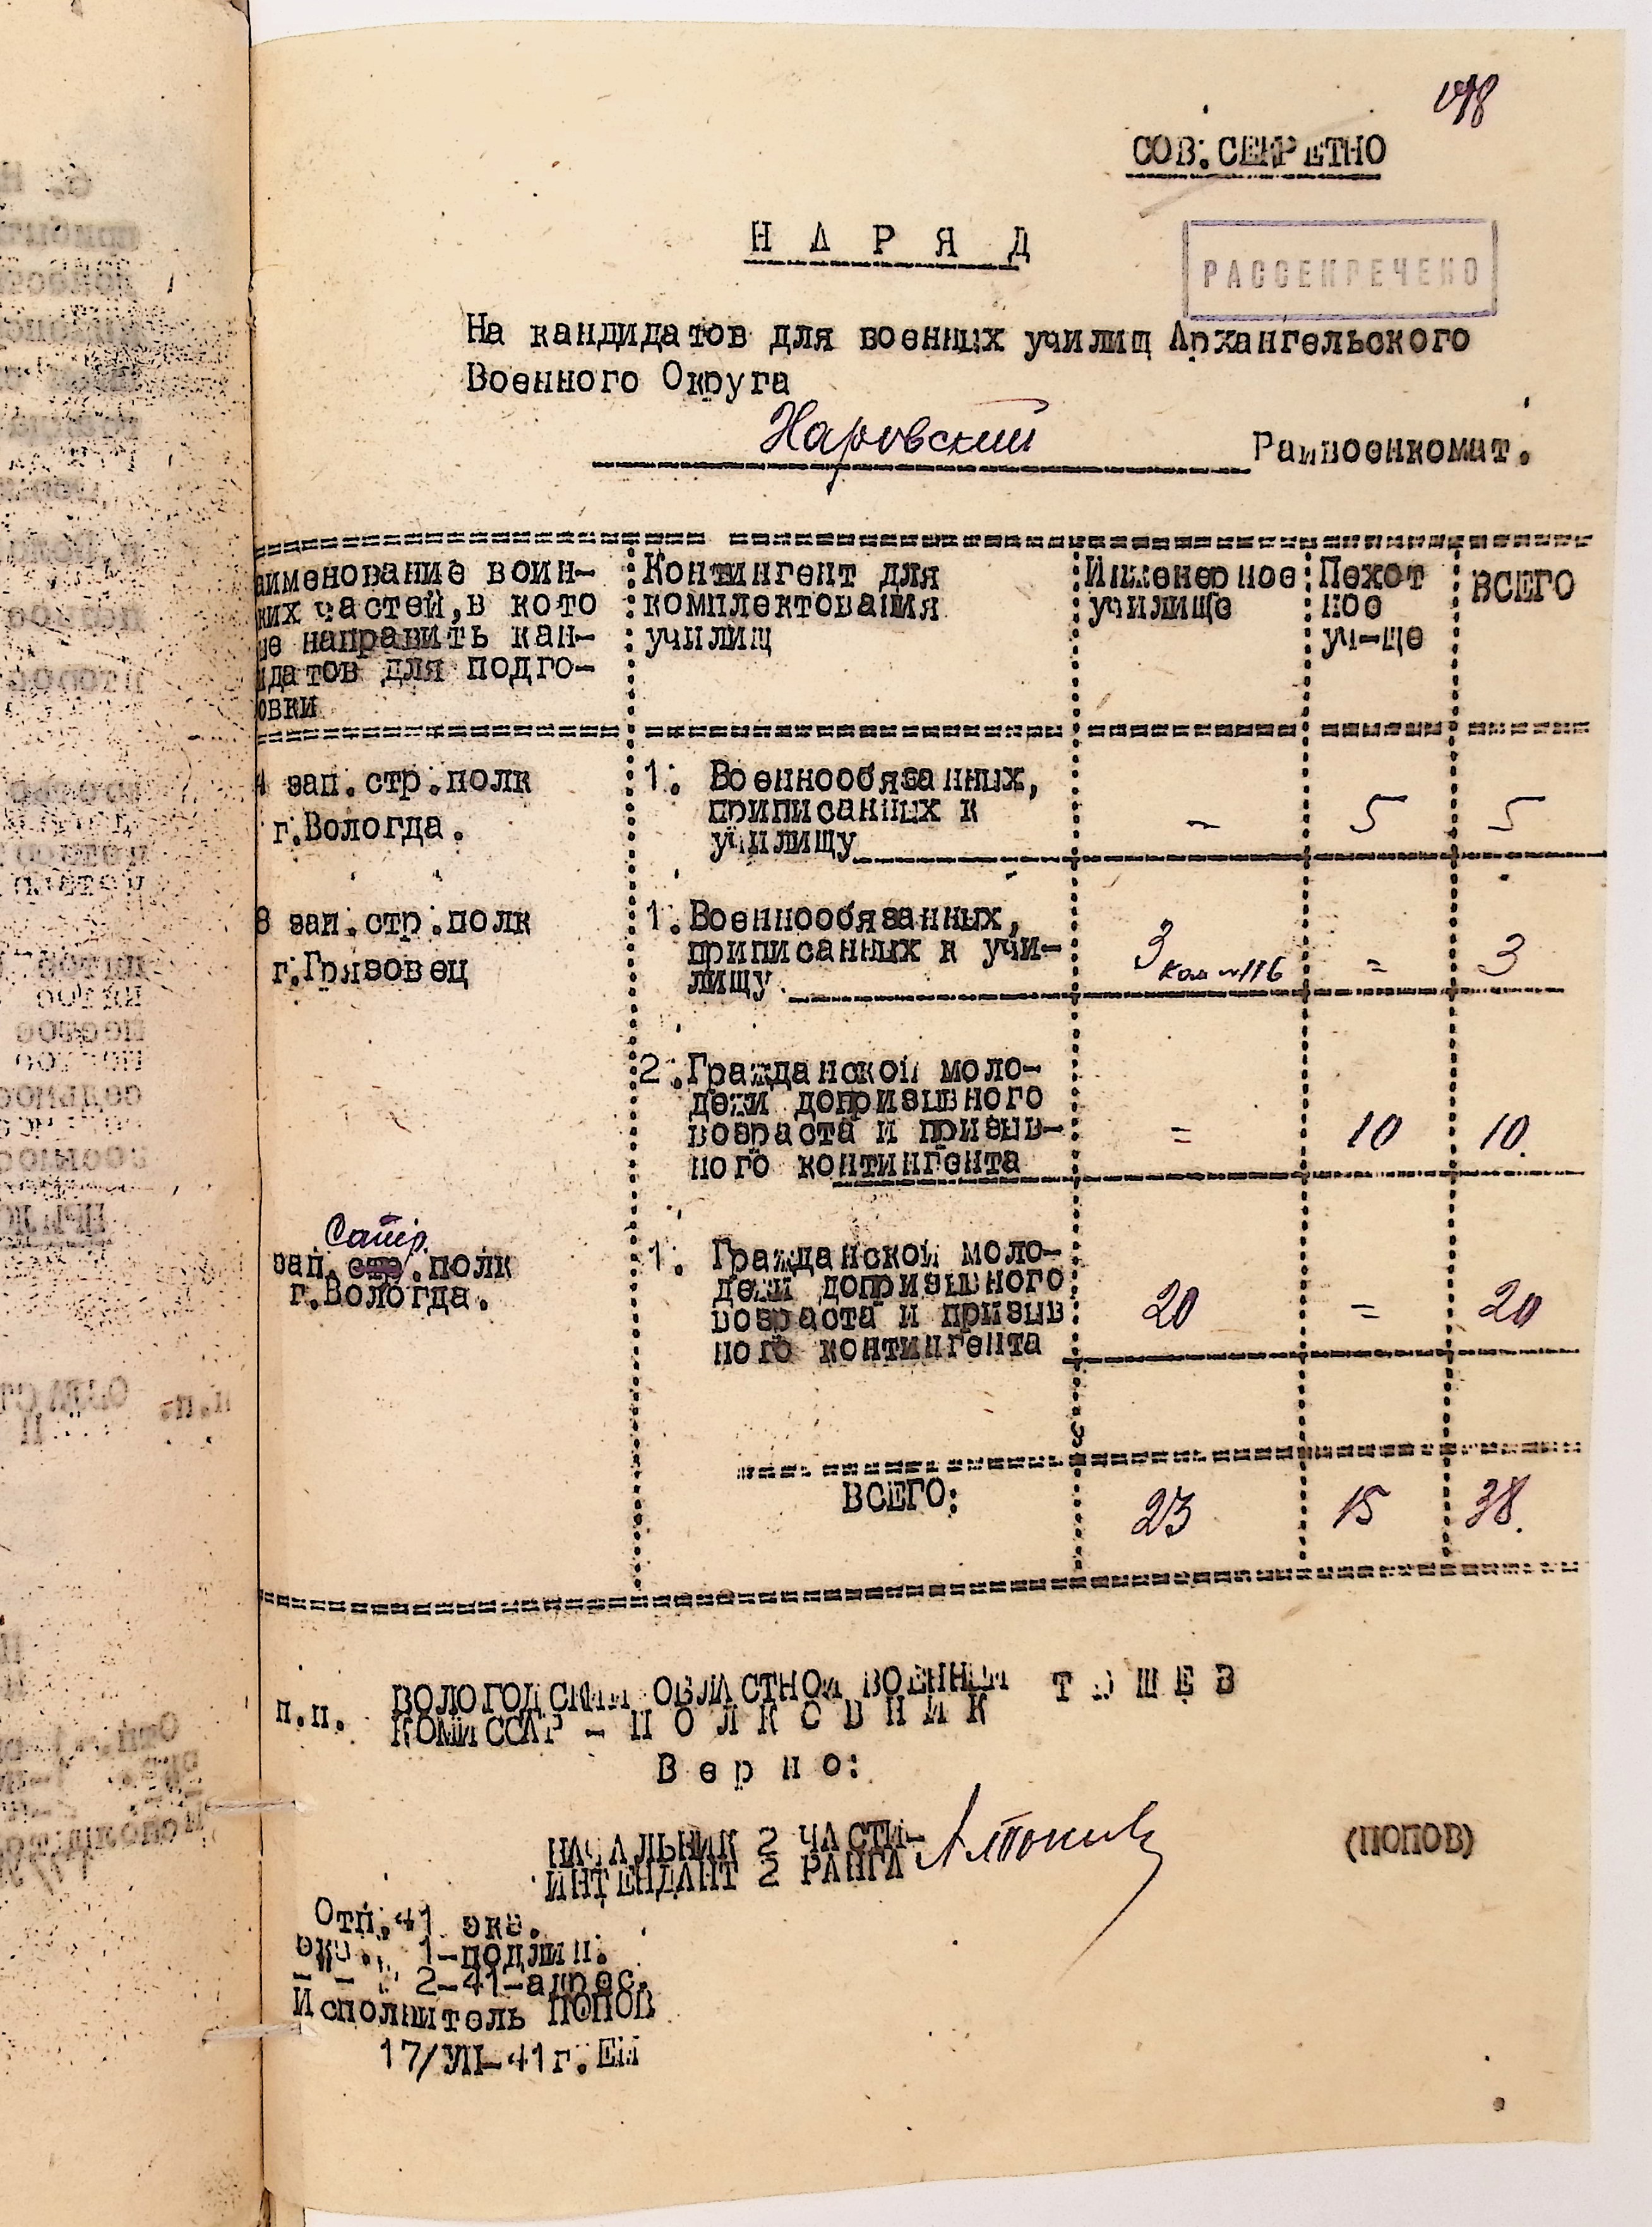 198
СОВ.СЕКРЕТНО
Н А Р Я Д
РАССЕКРЕЧЕНО
На кандидатов для военных училищ Архангельского
Военного Округа
Харовский Райвоенкомат.
аименование воин-
ких частей, в кото
ые направить кан-
идатов для подго-
овки
Контингент для
комплектования
училищ
Инженерное
училище
Пехот
ное
уч-ще
ВСЕГО
4 зап.стр.полк
г.Вологда.
1. Военнообязанных,
приписанных к
училищу
-
5
5
8 зап.стр.полк
г.Грязовец
1.Военнообязанных,
приписанных к учи-
лищу.
3
=
3
2.Гражданской моло-
дежи допризывного
возраста и призыв-
ного контингента
=
10
10.
зап. .полк
г.Вологда.
1. Гражданской моло-
дежи допризывного
возраста и призыв
ного контингента
20
=
20
ВСЕГО:
23
15
38.
п.п. ВОЛОГОДСКИЙ ОБЛАСТНОЙ ВОЕННЫЙ
КОМИССАР - П О Л К О В Н И К
В е р н о:
НАЧАЛЬНИК 2 ЧАСТИ-
ИНТЕНДАНТ 2 РАНГА
(ПОПОВ)
Отп.41 экз.
экз. 1-подлин.
- " - 2-41-адрес.
Исполнитель ПОПОВ
17/УІІ-41г.ЕМ